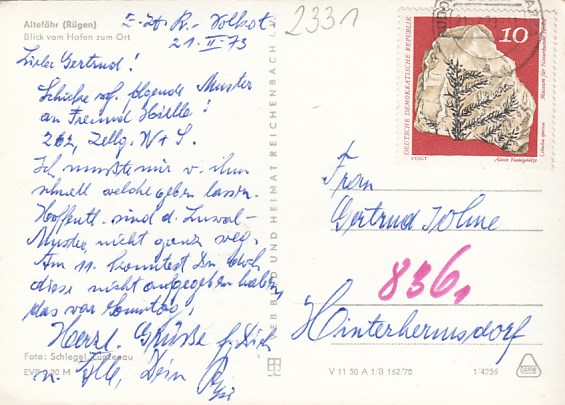 Altefähr (Rügen)
Blick vom Hafen zum Ort
2331
21. II. 73
Liebe Gertrud!
Schicke sof. folgende Muster
an Freund Hielle!
262, Zellg. W + S.
Ich mußte mir v. ihm
schnell welche geben lassen.
Hoffentl. sind d.
Muster nicht ganz weg.
Am 11. konntest Du doch
diese nicht aufgegeben haben,
das war Sonntag.
Herzl. Grüße f. Dich
u. Elle, Dein
Foto: Schlegel, Lunzenau
EVP 0,20 M
VEB BILD UND HEIMAT REICHENBACH I. V.
DEUTSCHE DEMOKRATISCHE REPUBLIK
10
VOIGT
Frau
Gertrud Tohne
836,
Hinterhermsdorf
V 11 50 A 1/B 162/70
1/4256